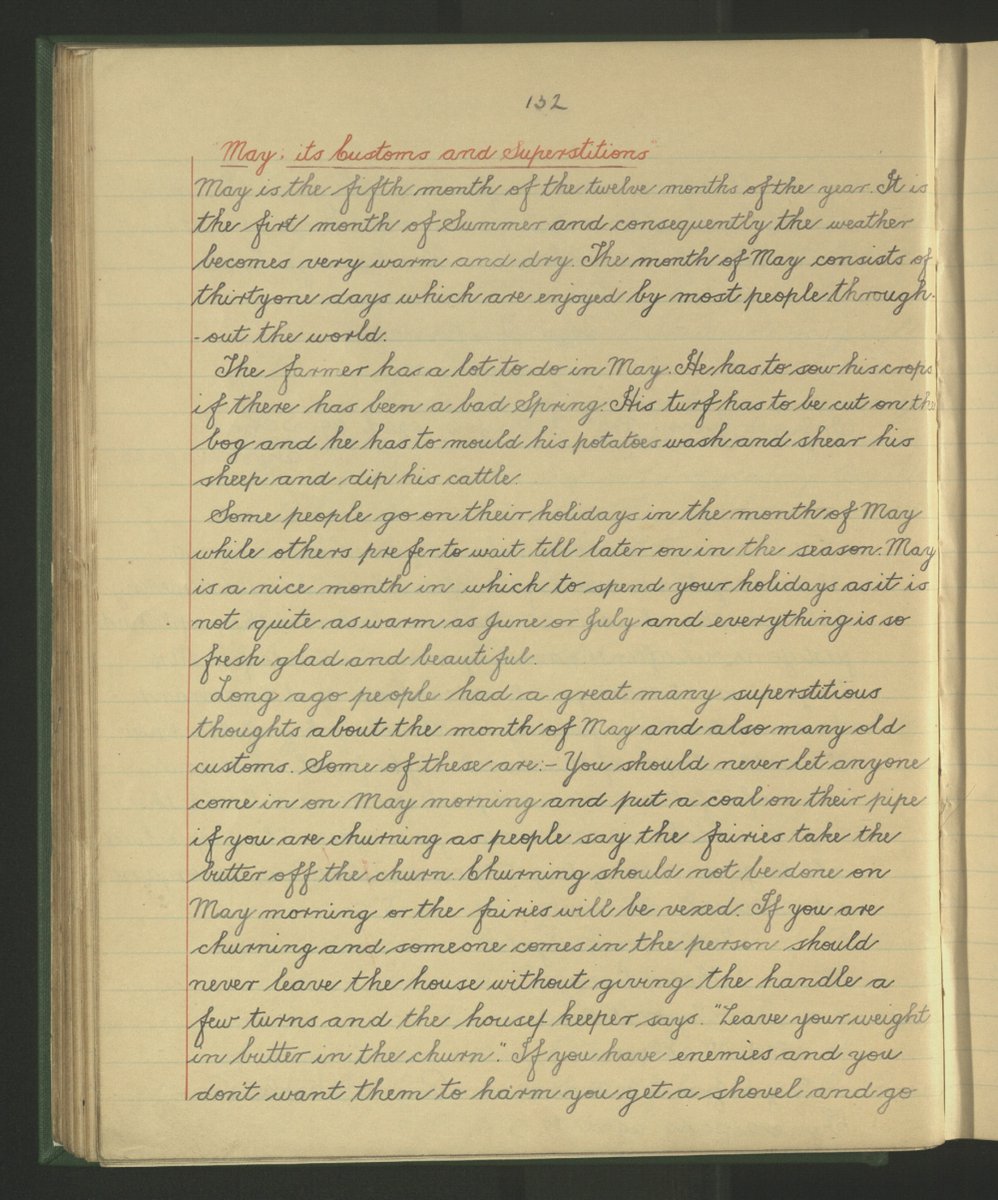 132
"May; its Customs and Superstitions"
May is the fifth month of the twelve months of the year. It is
the firt month of Summer and consequently the weather
becomes very warm and dry. The month of May consists of
thirtyone days which are enjoyed by most people through-
-out the world.
The farmer has a lot to do in May. He has to sow his crops
if there has been a bad Spring. His turf has to be cut on the
bog and he has to mould his potatoes wash and shear his
sheep and dip his cattle.
Some people go on their holidays in the month of May
while others prefer to wait till later on in the season. May
is a nice month in which to spend your holidays as it is
not quite as warm as June or July and everything is so
fresh glad and beautiful.
Long ago people had a great many superstitious
thoughts about the month of May and also many old
customs. Some of these are:- You should never let anyone
come in on May morning and put a coal on their pipe
if you are churning as people say the fairies take the
butter off the churn. Churning should not be done on
May morning or the fairies will be vexed. If you are
churning and someone comes in the person should
never leave the house without giving the handle a
few turns and the house keeper says. "Leave your weight
in butter in the churn". If you have enemies and you
don't want them to harm you get a shovel and go